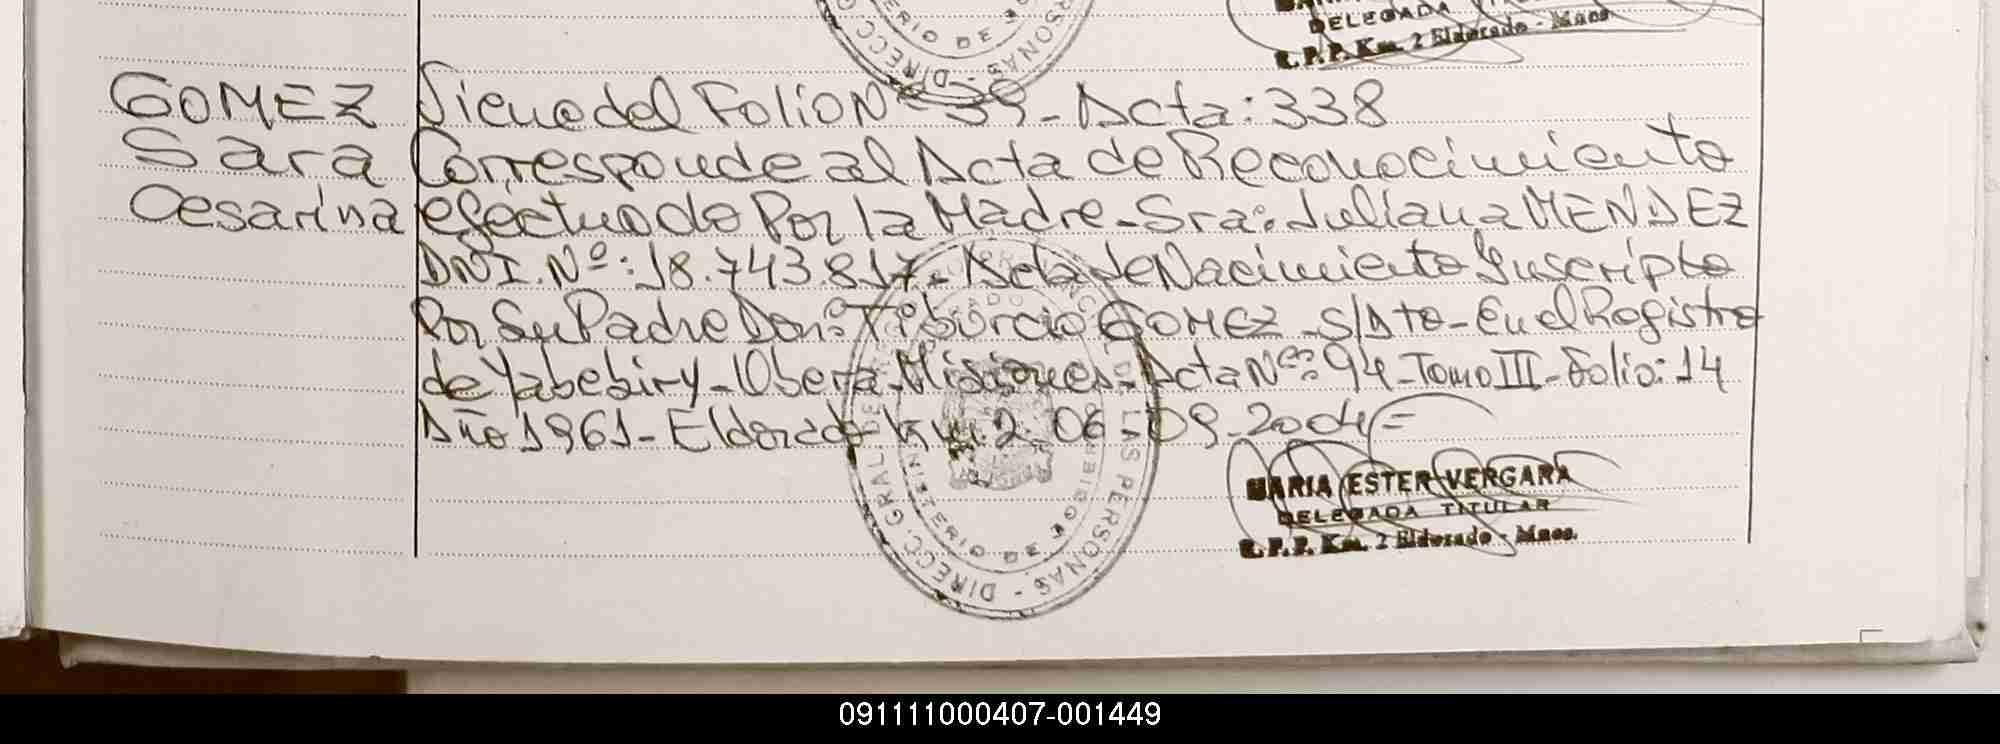 DELEGADA
R.P.P. Km. 2 Eldorado - Mnes
PERSONAS - DIRECC.
GOMEZ Sieue del Folio Nº 39 - Acta: 338
Sara Corresponde al Acta de Reconocimiento
Cesarina efectuado Por la Madre - Sra: Juliana MENDEZ
DNI. Nº: 18.743.817 - Acta de Nacimiento Inscripto
Por Su Padre Don: Tiburcio GOMEZ - S/Dto - En el Registro
de Yabebiry - Obera - Misiones - Acta Nº: 94 - Tomo III - Folio: 14
Año 1961 - Eldorado Km. 2 - 06 - 09 - 2004 =
MARIA ESTER VERGARA
DELEGADA TITULAR
R.P.P. Km. 2 Eldorado - Mnes.
DIRECC. GRAL
PERSONAS
091111000407-001449